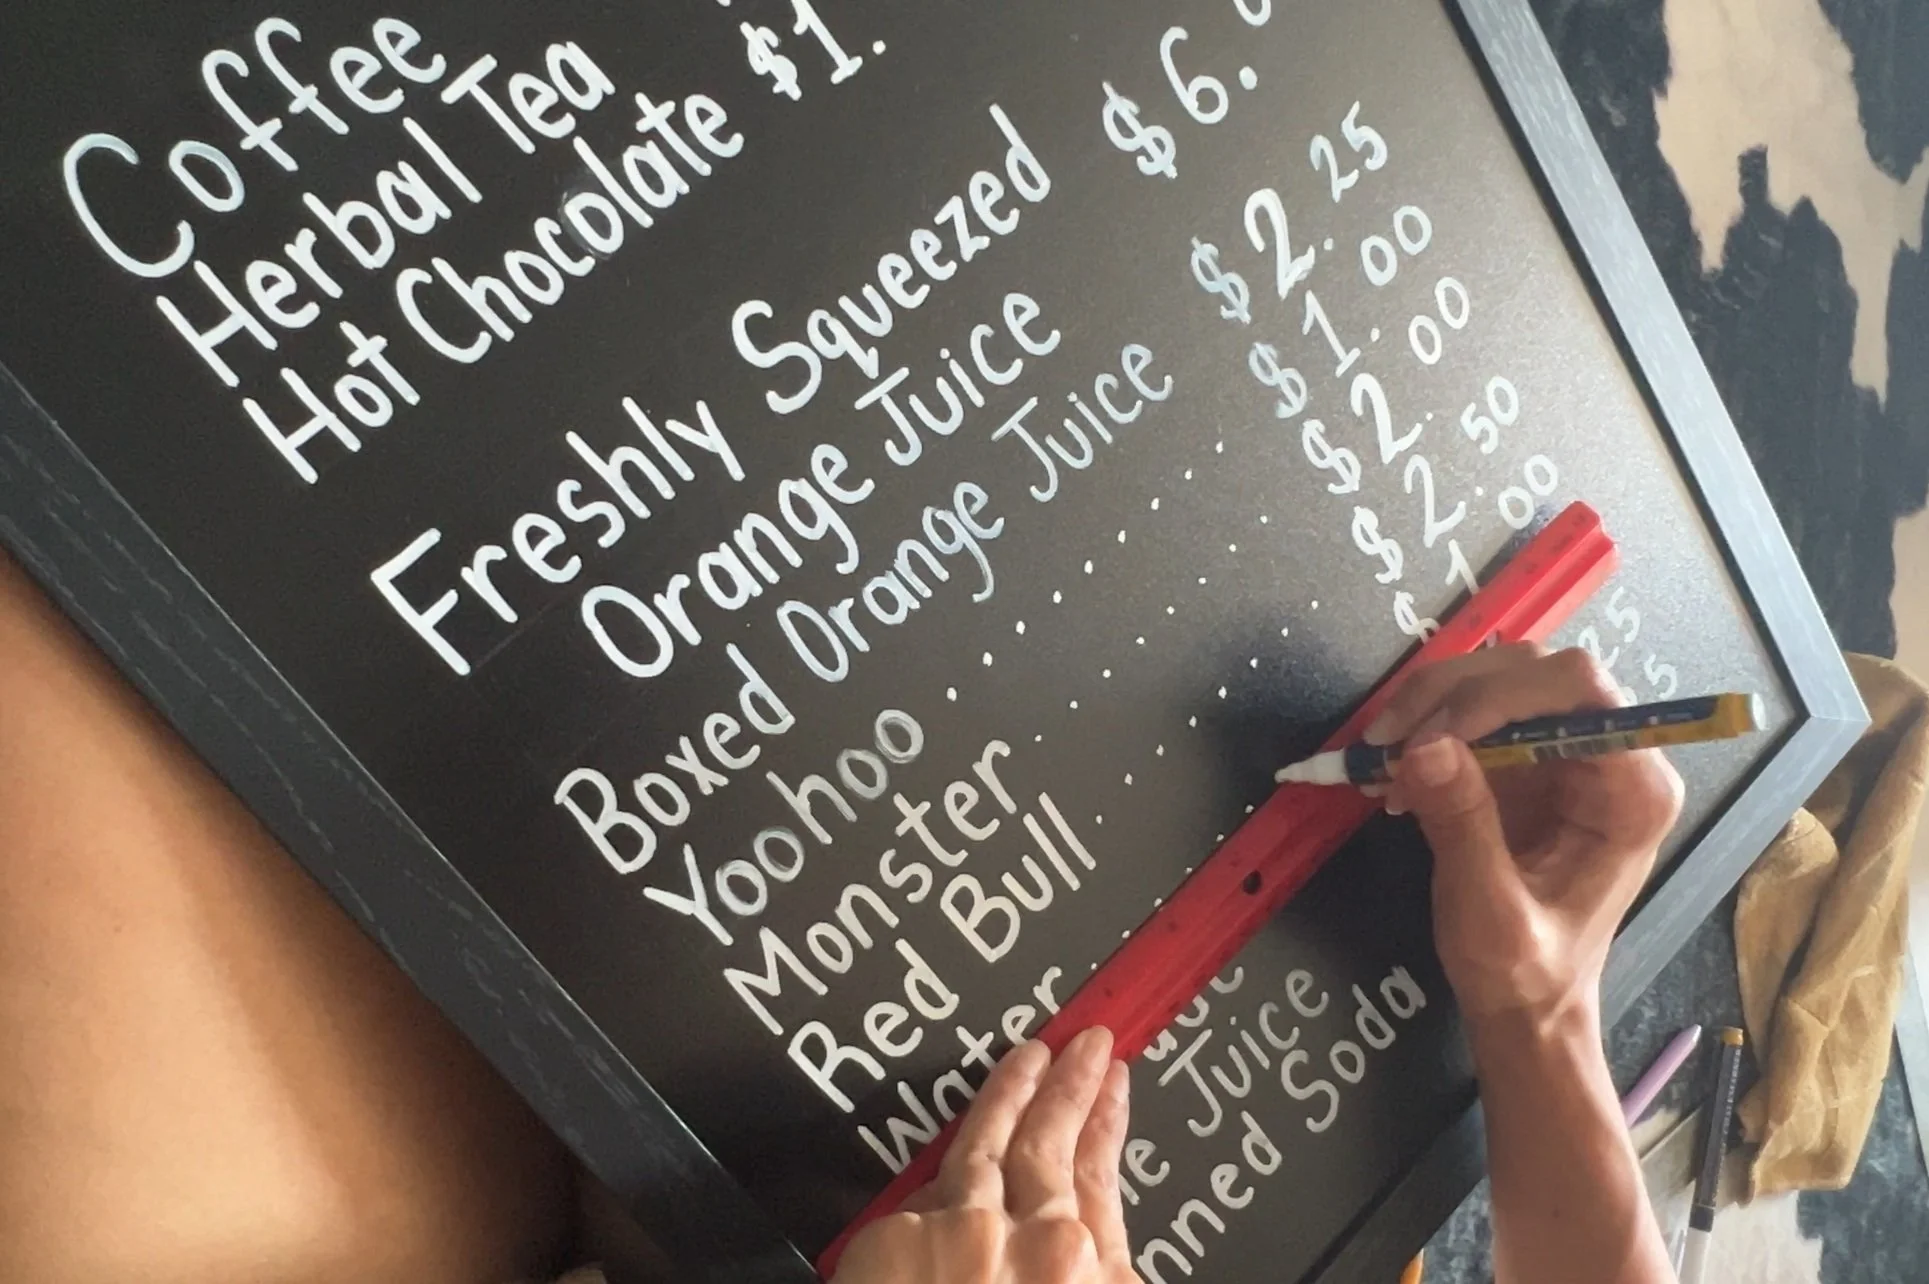 Coffee
Herbal Tea
Hot Chocolate $1.
Freshly Squeezed $6.
Orange Juice
Boxed Orange Juice $2.25
Yoohoo . . . . . . . . . $1.00
Monster . . . . . . . $2.00
Red Bull . . . . . . . $2.50
Water $1.00
25
Juice 5
Soda